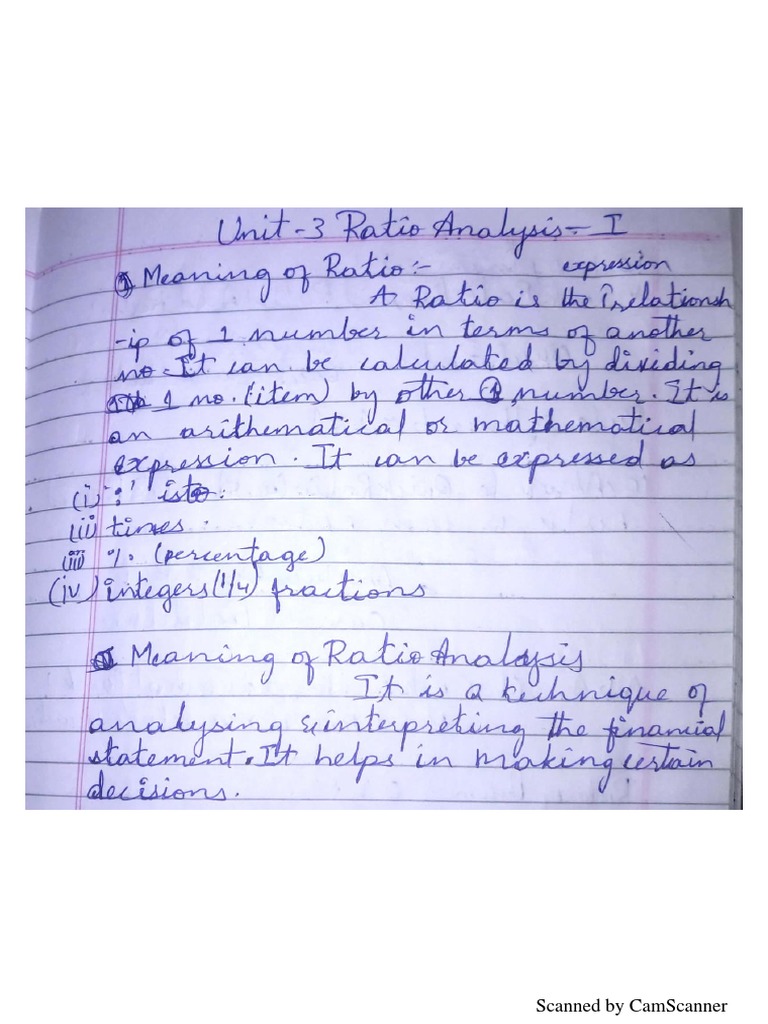 Unit-3 Ratio Analysis- I
① Meaning of Ratio:- expression
A Ratio is the relationsh
-ip of 1 number in terms of another
no. It can be calculated by dividing
1 no. (item) by other ① number. It is
an arithematical or mathematical
expression. It can be expressed as
(i) ':' isto:
(ii) times.
(iii) % (percentage)
(iv) integers(1/4) fractions
Meaning of Ratio Analysis
It is a technique of
analysing & interpreting the financial
statement. It helps in making certain
decisions.
Scanned by CamScanner